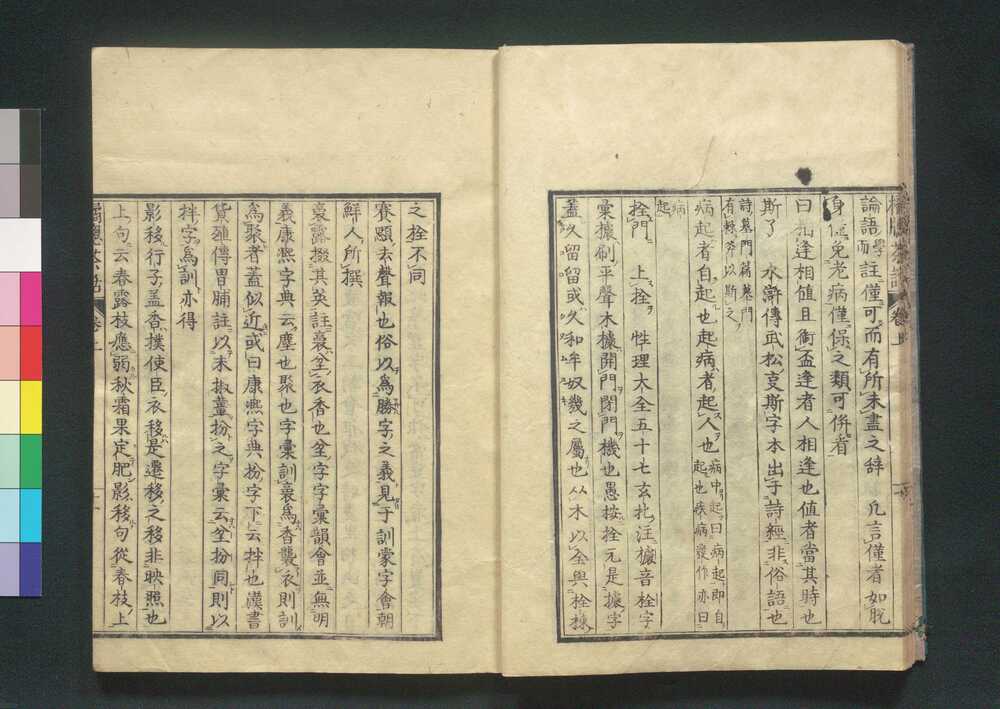 橘牕茶話 卷上
論語學而註僅可而有所未盡之辞 凡言僅者如脫
身僅免老病僅保之類可併省
曰 逢相值且衘盃逢者人相逢也值者當其時也
斯了 水滸傳武松 斯字本出于詩經非俗語也
詩墓門蕀墓門
有蕀斧以斯之
病起者自起也起病者起人也 病中起曰病起即自
起也疾病發作亦曰
病
起
拴門 上拴 性理大全五十七玄札注櫦音栓字
彙櫦刷平聲木櫦開門閉門機也愚按拴元是櫦字
蓋以留留或以和牟奴幾之屬也从木以全與栓揀
之拴不同
賽願去聲報也俗以為勝字之義見于訓蒙字會朝
鮮人所撰
裛露掇其英註裛坌衣香也坌字字彙韻會並無明
義康熙字典云塵也聚也字彙訓裛為香襲衣則訓
為聚者蓋似近或曰康熙字典扮字下云拌也漢書
貨殖傳胃脯註以末椒薑扮之字彙云坌扮同則以
拌字為訓亦得
影移行子蓋香撲使臣衣移是遷移之移非映照也
上句云春露枝應弱秋霜果定肥影移句從春枝上
橘牕茶話 卷上